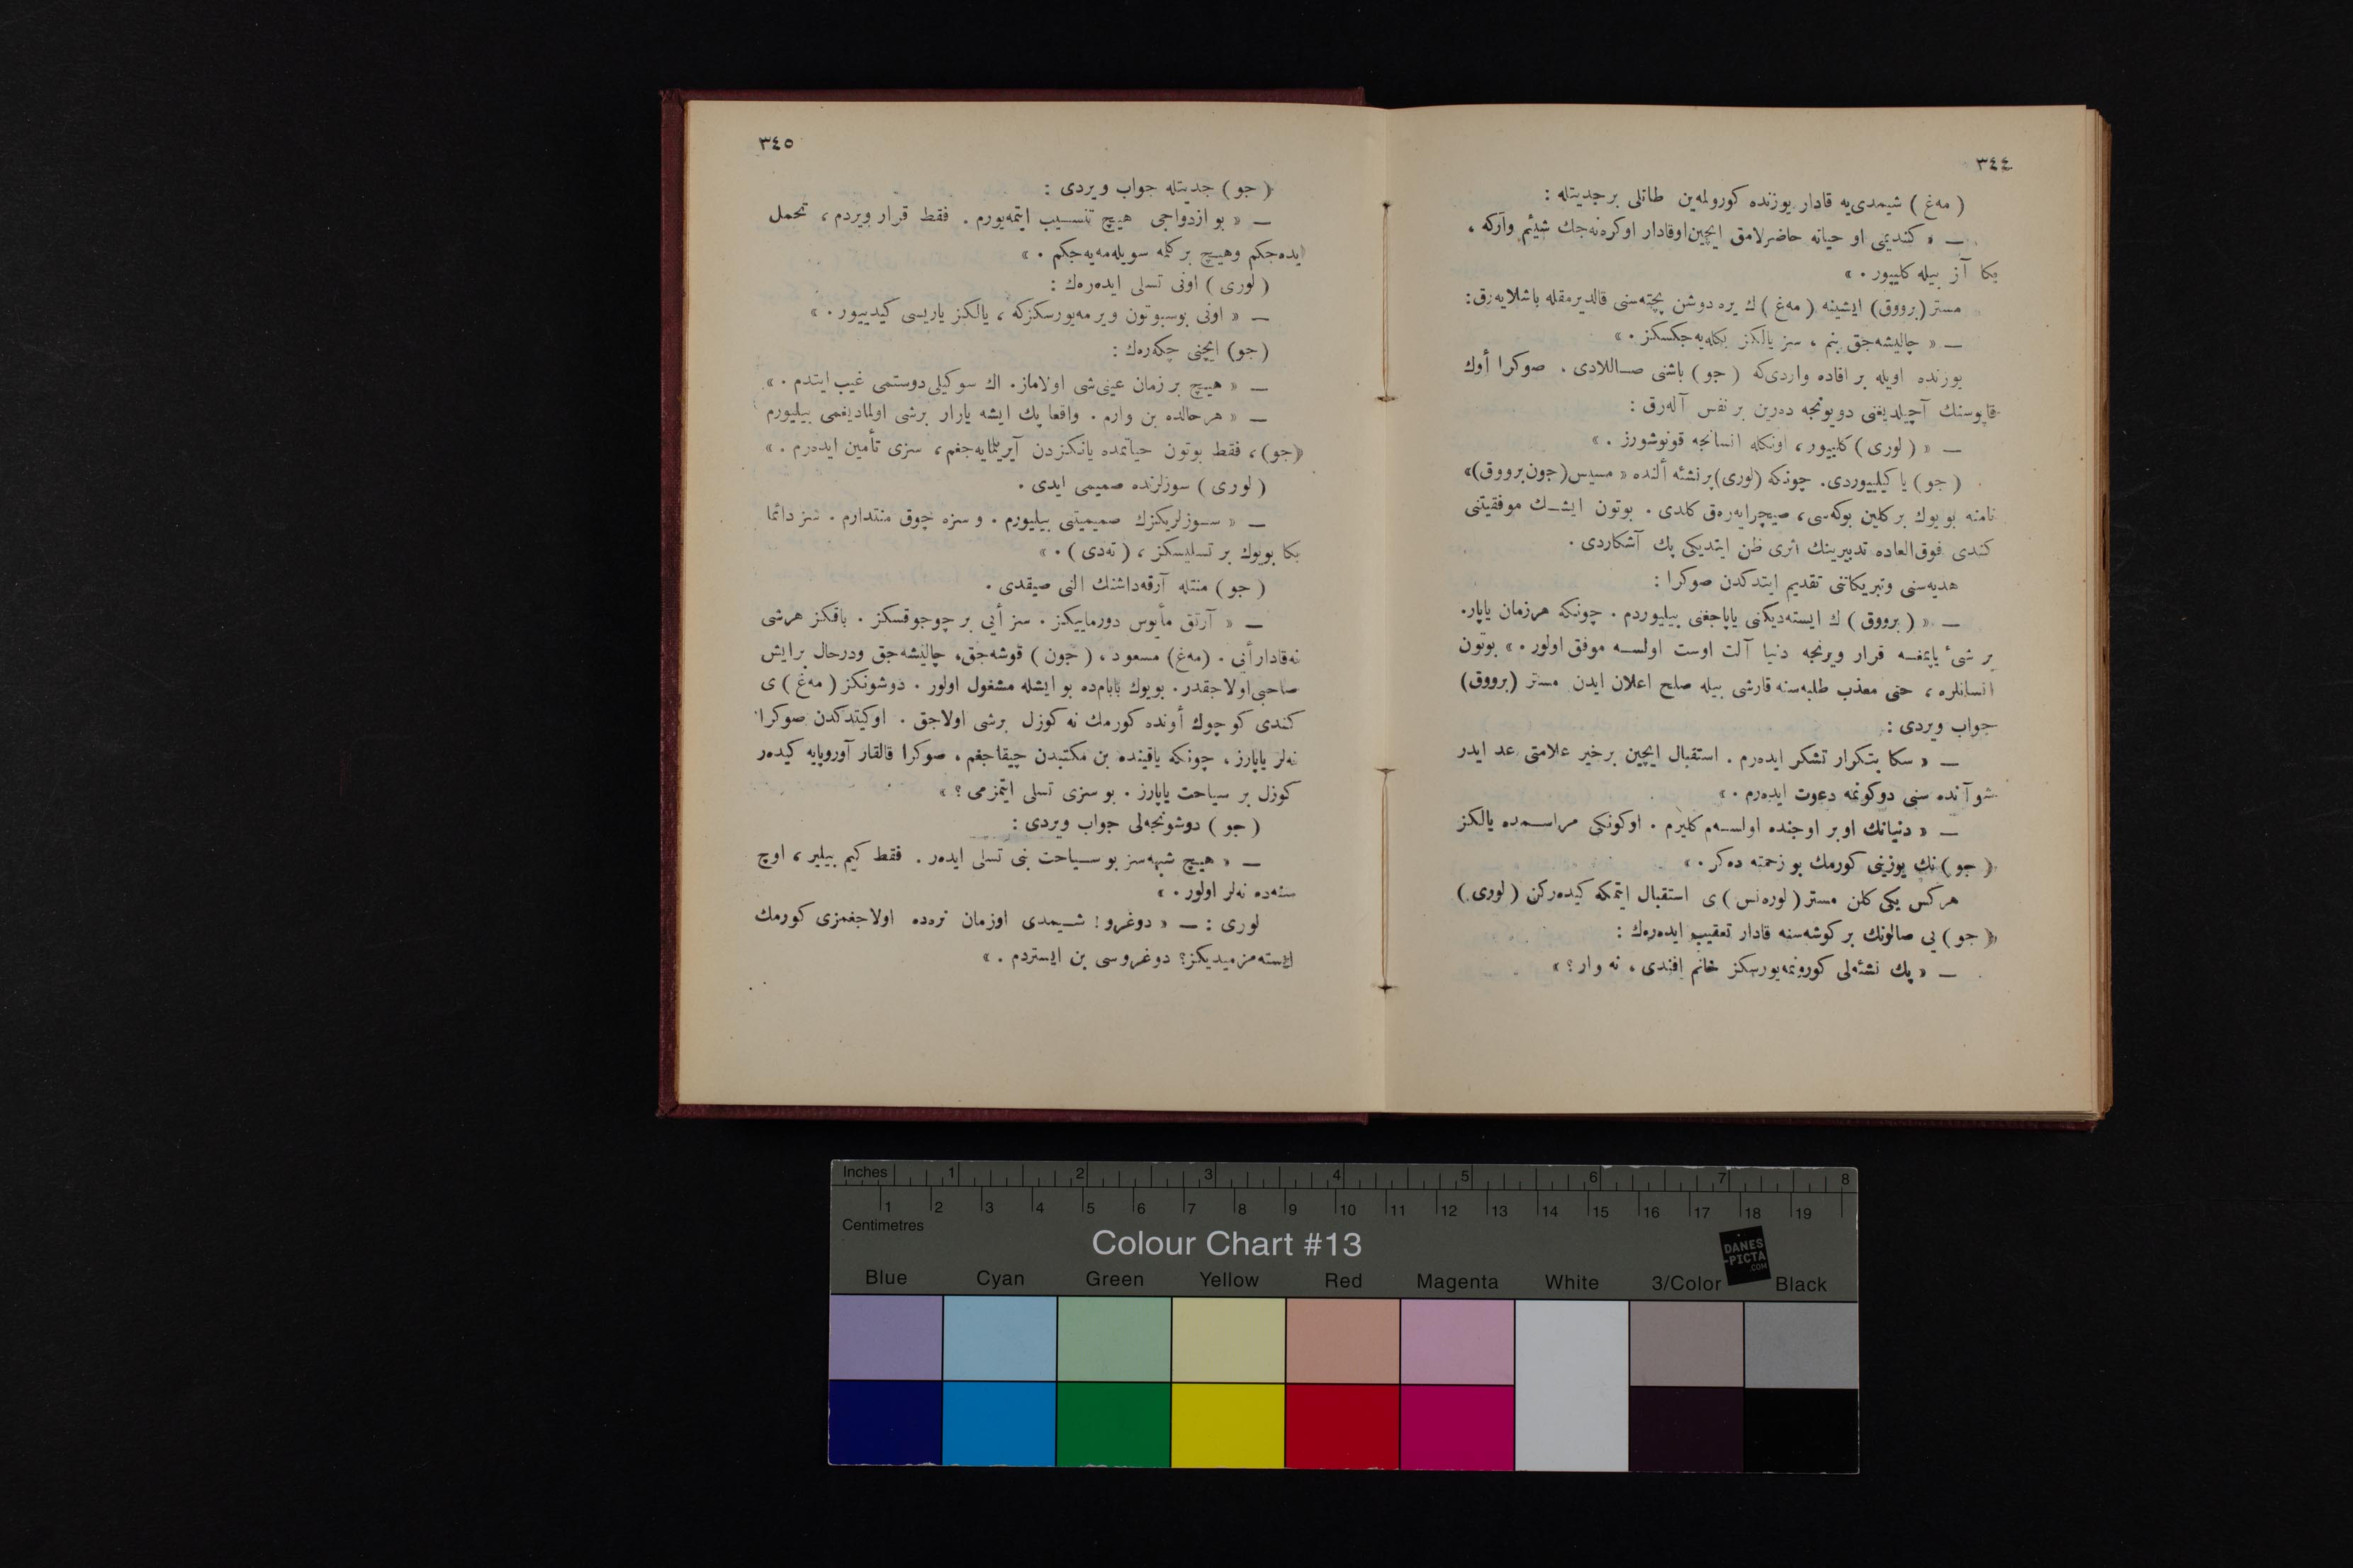 ٣٤٤
( مه‌غ ) شيمدى‌يه قادار يوزنده كورولمه‌ين طاتلى برجديتله :
— « كنديمى او حياته حاضرلامق ايچين‌اوقادار اوكره‌نه‌جك شيئم واركه ،
بكا آز بيله كلييور . »
مستر (برووق) ايشينه ( مه‌غ ) ك يره دوشن بچته‌سنى قالديرمقله باشلايه‌رق :
— « چاليشه‌جق بنم ، سز يالكز بكله‌يه‌جكسكز . »
يوزنده اويله بر افاده واردى‌كه ( جو ) باشنى صاللادى . صوكرا أوك
قاپوسنك آچيلديغنى دويونجه ده‌رين بر نفس آله‌رق :
— « ( لورى ) كلييور ، اونكله انسانجه قونوشورز . »
( جو ) يا كيلييوردى. چونكه (لورى)پرنشئه ألنده « مسيس(جون‌برووق)»
نامنه بويوك بر كلين بوكه‌سى ، صيچرايه‌ره‌ق كلدى . بوتون ايشك موفقيتنى
كندى فوق‌العاده تدبيرينك اثرى ظن ايتديكى پك آشكاردى .
هديه‌سنى وتبريكاتنى تقديم ايتدكدن صوكرا :
— « ( برووق ) ك ايسته‌ديكنى ياپاجغنى بيلييوردم . چونكه هرزمان ياپار.
بر شئ ياپمغه قرار ويرنجه دنيا آلت اوست اولسه موفق اولور . » بوتون
انسانلره ، حتى معذب طلبه‌سنه قارشى بيله صلح اعلان ايدن مستر (برووق)
جواب ويردى :
— « سكا بتكرار تشكر ايده‌رم . استقبال ايچين برخير علامتى عد ايدر
شو آنده سنى دوكونمه دعوت ايده‌رم . »
— « دنيانك اوبر اوجنده اولسه‌م كليرم . اوكونكى مراسمده يالكز
( جو ) نك يوزينى كورمك بو زحمته ده‌كر . »
هركس يكى كلن مستر ( لوره‌نس ) ى استقبال ايتمكه كيده‌ركن ( لورى )
( جو ) يى صالونك بر كوشه‌سنه قادار تعقيب ايده‌رك :
— « پك نشئه‌لى كورونمه‌يورسكز خانم افندى ، نه وار ؟ »
٣٤٥
( جو ) جديتله جواب ويردى :
— « بو ازدواجى هيچ تنسيب ايتمه‌يورم . فقط قرار ويردم ، تحمل
ايده‌جكم وهيچ بر كلمه سويله‌مه‌يه‌جكم . »
( لورى ) اونى تسلى ايده‌رك :
— « اونى بوسبوتون ويرمه‌يورسكزكه ، يالكز ياريسى كيدييور . »
(جو) ايچنى چكه‌رك :
— « هيچ بر زمان عينى‌شى اولاماز. اك سوكيلى‌دوستمى غيب ايتدم . »
— « هرحالده بن وارم . واقعا پك ايشه يارار برشى اولماديغمى بيلييورم
(جو) ، فقط بوتون حياتمده يانكزدن آيريلمايه‌جغم ، سزى تأمين ايده‌رم . »
( لورى ) سوزلرنده صميمى ايدى .
— « سوزلريكزك صميميتنى بيلييورم . و سزه چوق منتدارم . سز دائما
بكا بويوك بر تسليسكز ، ( ته‌دى ) . »
( جو ) منتله آرقه‌داشنك النى صيقدى .
— « آرتق مأيوس دورماييكز . سز أيى بر چوجوقسكز . باقكز هرشى
نه‌قادارأيى . (مه‌غ) مسعود ، ( جون ) قوشه‌جق، چاليشه‌جق ودرحال برايش
صاحبى‌اولاجقدر. بويوك بابام‌ده بو ايشله مشغول اولور . دوشونكز ( مه‌غ ) ى
كندى كوچوك أونده كورمك نه كوزل برشى اولاجق . اوكيتدكدن صوكرا
نه‌لر ياپارز ، چونكه ياقينده بن مكتبدن چيقاجغم ، صوكرا قالقار آوروپايه كيده‌ر
كوزل بر سياحت ياپارز . بو سزى تسلى ايتمزمى ؟ »
( جو ) دوشونجه‌لى جواب ويردى :
— « هيچ شبهه‌سز بو سياحت بنى تسلى ايده‌ر . فقط كيم بيلير ، اوچ
سنه‌ده نه‌لر اولور . »
لورى : — « دوغرو ! شيمدى اوزمان نره‌ده اولاجغمزى كورمك
ايسته‌مزميديكز؟ دوغروسى بن ايستردم . »
Inches 1 2 3 4 5 6 7 8
1 2 3 4 5 6 7 8 9 10 11 12 13 14 15 16 17 18 19
Centimetres
Colour Chart #13
DANES
-PICTA
.COM
Blue Cyan Green Yellow Red Magenta White 3/Color Black